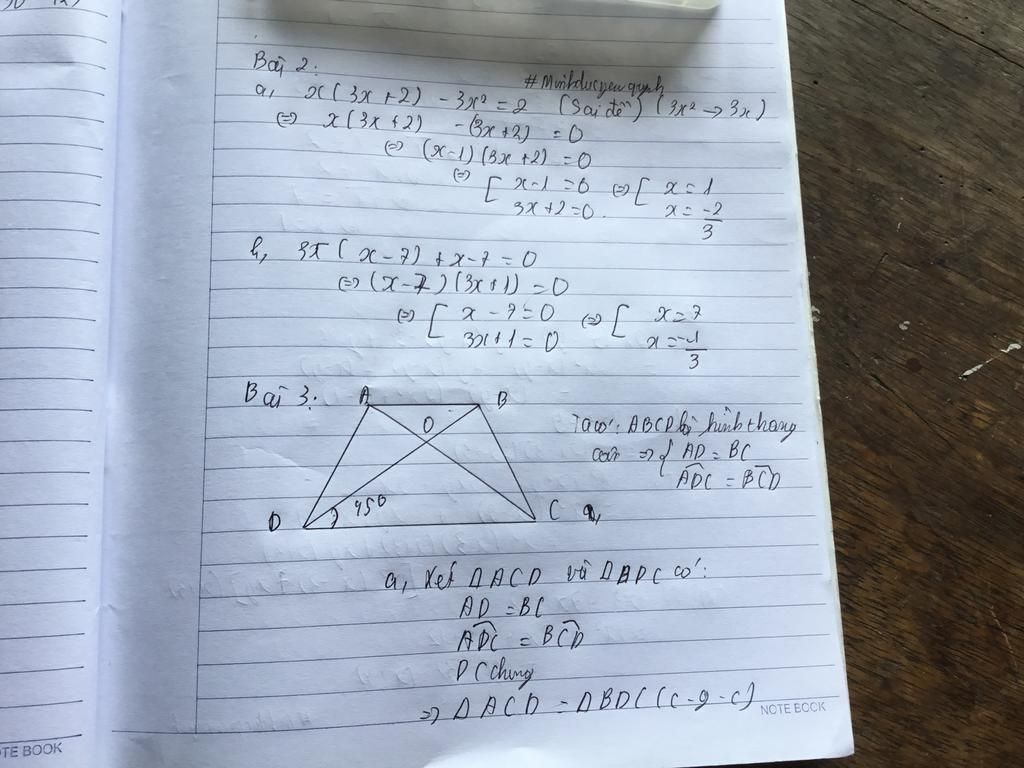 Bài 2:
#Minhducyeuquynh
a, x(3x+2) - 3x² = 2 (Sai đề) (3x² → 3x)
⇔ x(3x+2) - (3x+2) = 0
⇔ (x-1)(3x+2) = 0
⇔ [ x-1 = 0 ⇔ [ x = 1
3x+2 = 0. x = -2/3
b, 3x(x-7) + x-7 = 0
⇔ (x-7)(3x+1) = 0
⇔ [ x-7 = 0 ⇔ [ x = 7
3x+1 = 0 x = -1/3
Bài 3:
A B
O
D 450 C a,
Ta có: ABCD là hình thang
cân ⇒ { AD = BC
ADC = BCD
a, Xét ΔACD và ΔBDC có:
AD = BC
ADC = BCD
DC chung
⇒ ΔACD = ΔBDC (c-g-c)
NOTE BOOK
TE BOOK